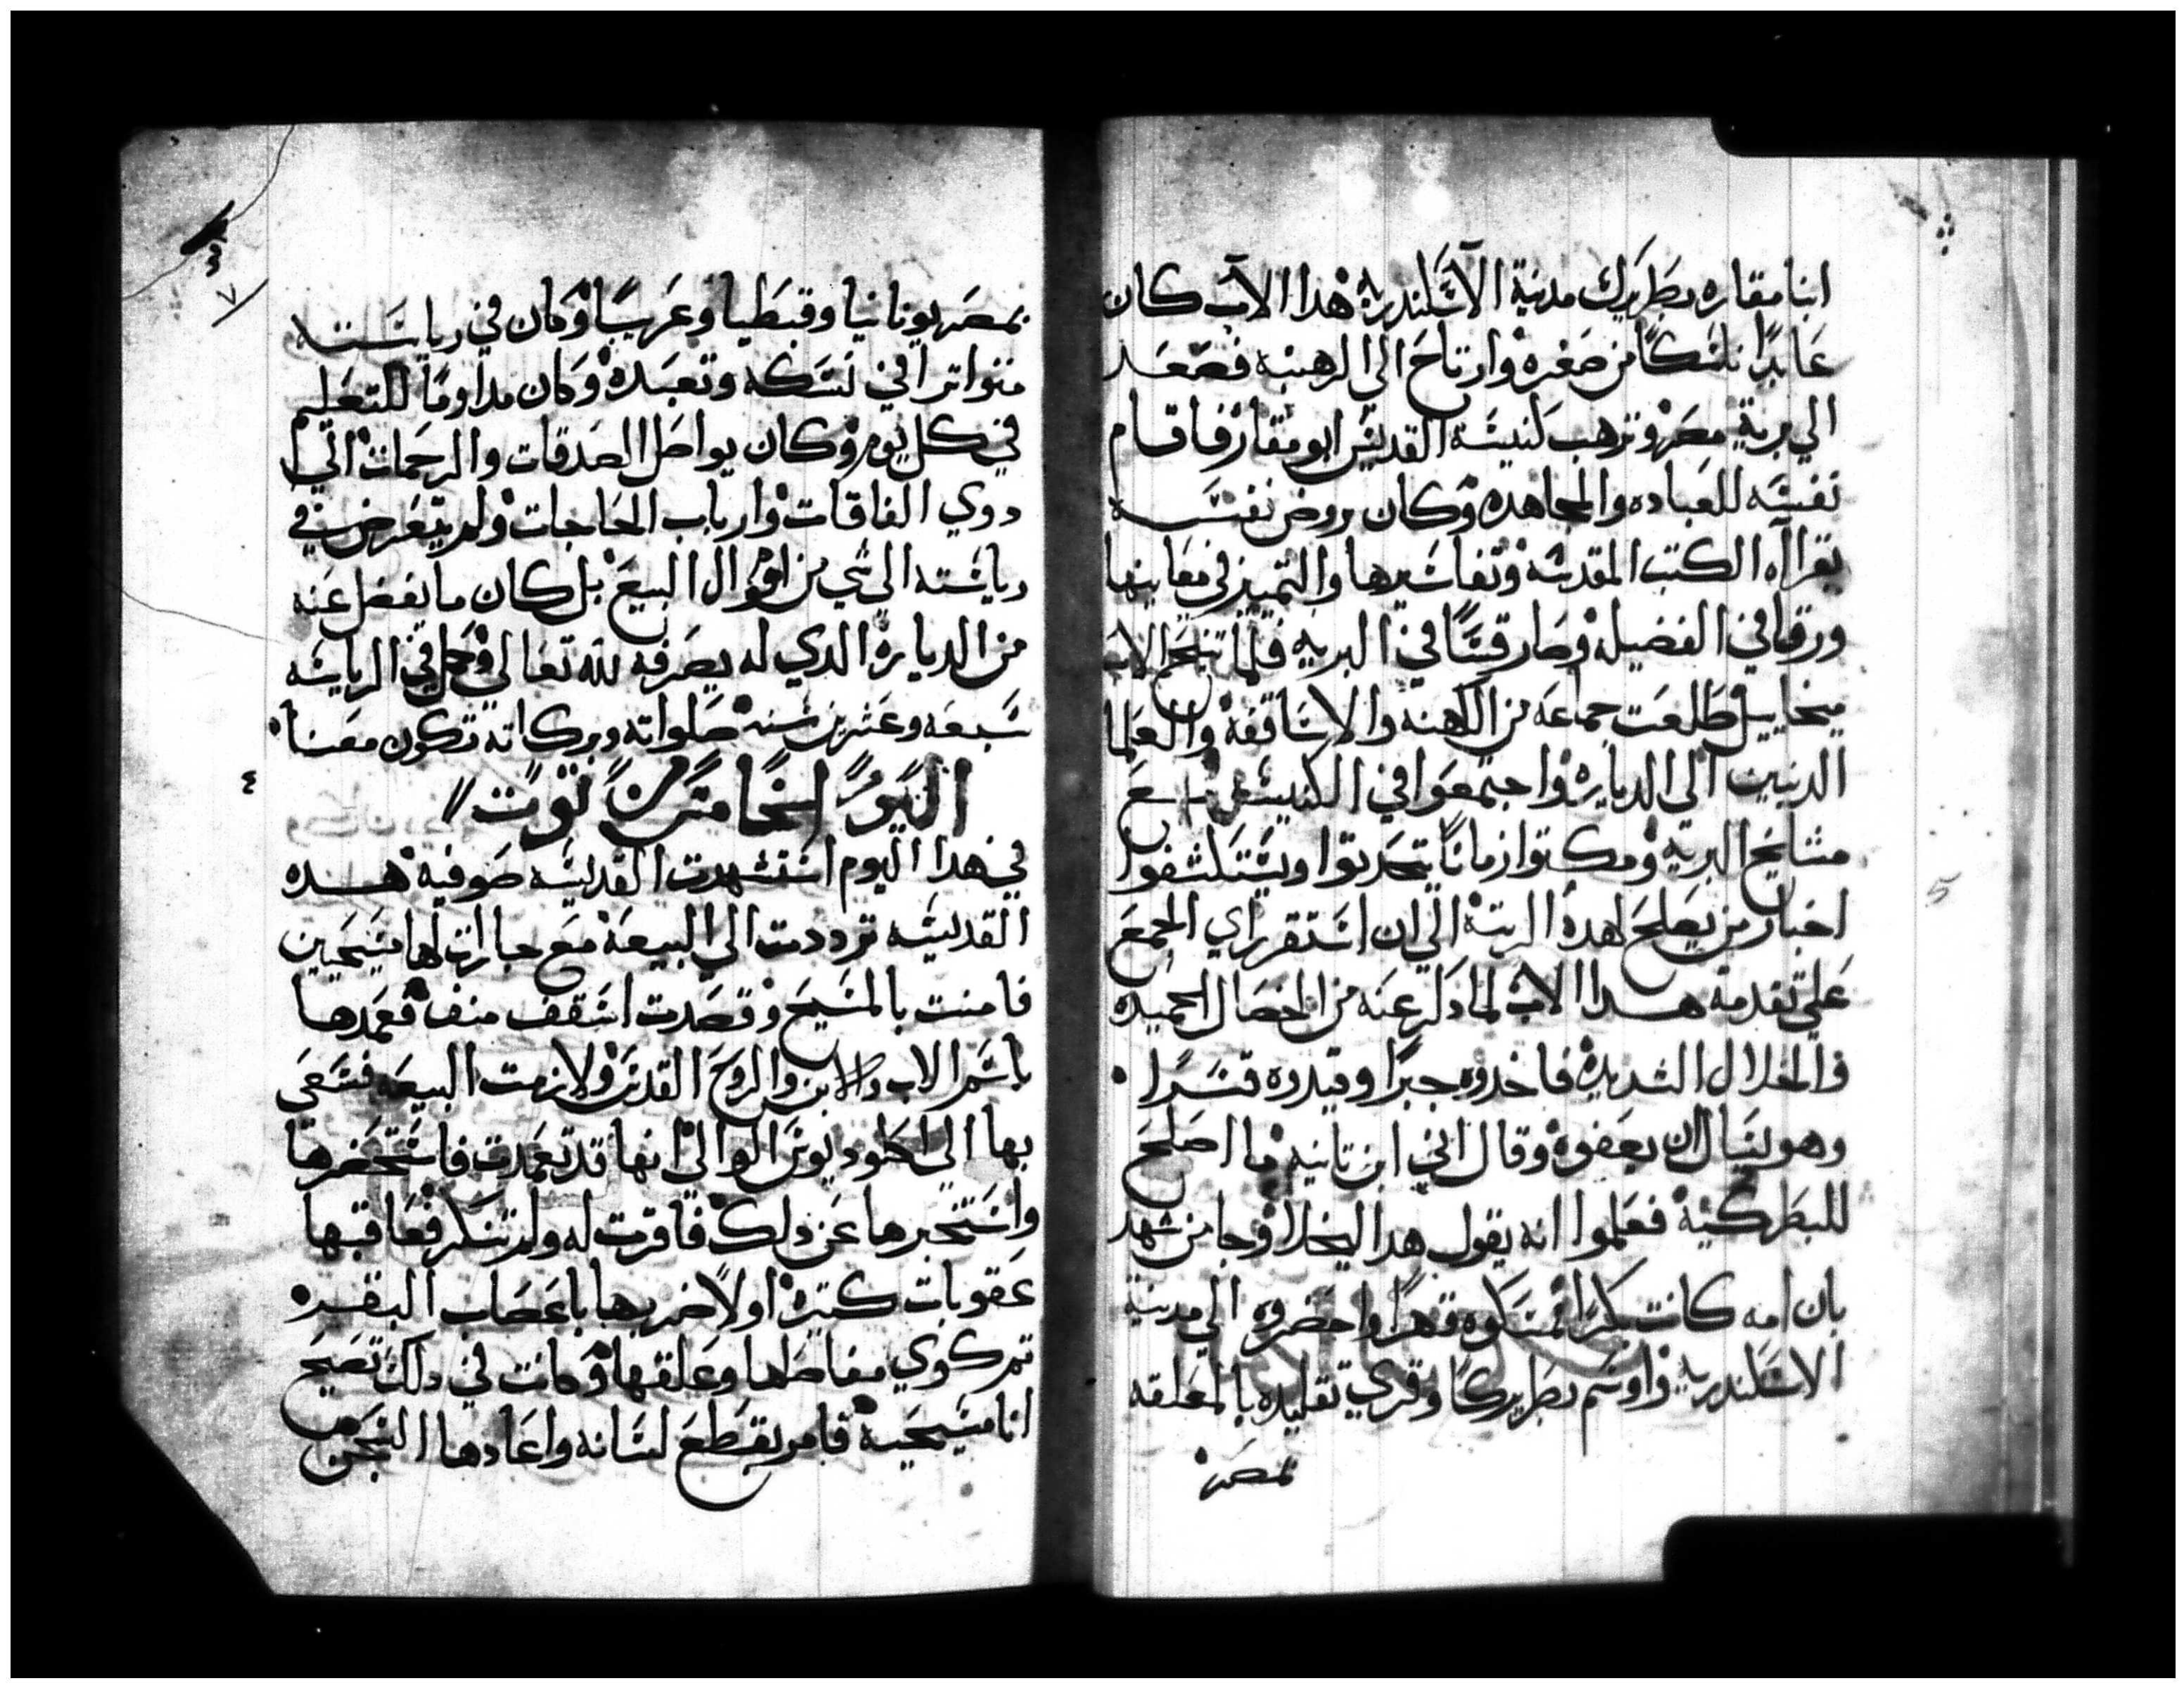 انبا مقاره بطريرك مدينة الاسكندريه هدا الاب كان
عابدًا ناسكًا من صغره وارتاح الي الرهبنه فصعد
الي برية مصر وترهب لنيسة القديس ابو مقار فاقام
نفسه للعباده والمجاهده وكان يروض نفسه
بقراآه الكتب المقدسه وتفاسيرها والتميز في معانيها
ورقا في الفضيله وصار قسًا في البريه فلما تنيح الاب
ميخاييل طلعت جماعه من الكهنه والاساقفه والعلما
الدينين الي الدياريه واجتمعوا في الكنيسه مع
مشايخ البريه ومكتوا زمانًا يتحدتوا ويستكشفوا
اخبار من يصلح لهده الرتبة الي ان استقر راي الجمع
علي تقدمة هدا الاب لما دكر عنه من الخصال الحميده
والخلال الشديده فاخدوه جبرًا وقيدوه قسرًا
وهو يسال ان يعفوه وقال اني ابن تانيه ما اصلح
للبطركية فعلموا انه يقول هدا ليخلا وجا من شهد
بان امه كانت بكرًا فمسكوه قهرًا واحضروه الي مدينة
الاسكندريه واوسم بطريركًا وقري تقليده بالمعلقه
بمصر
٣
٧
بمصر يونانيا وقبطيا وعربيًا وكان في رياسته
متواترا في نسكه وتعبده وكان مداومًا للتعليم
في كل يوم وكان يواصل الصدقات والرحمات الي
دوي الفاقات وارباب الحاجات ولم يتعرض في
رياسته الي شي من اموال البيع بل كان ما يفضل عنه
من الدياره الدي له يصرفه لله تعالي وكمل في الرياسه
سبعه وعشرين سنه صلواته وبركاته تكون معنا
٤
اليوم الخامس من توت
في هدا اليوم استشهدت القديسه صوفيه هده
القديسه ترددت الي البيعه مع جارات لها مسيحيين
فامنت بالمسيح وقصدت اسقف منف فعمدها
باسم الاب والابن والروح القدس ولازمت البيعه فسعي
بها الي اكلوديوس الوالي انها قد تعمدت فاستحضرها
واستخبرها عن دلك فاقرت له ولم تنكر فعاقبها
عقوبات كتيره اولًا ضربها باعصاب البقر
تم كوي مفاصلها وعلقها وكانت في دلك تصيح
انا مسيحيه فامر بقطع لسانه واعادها السجن
5